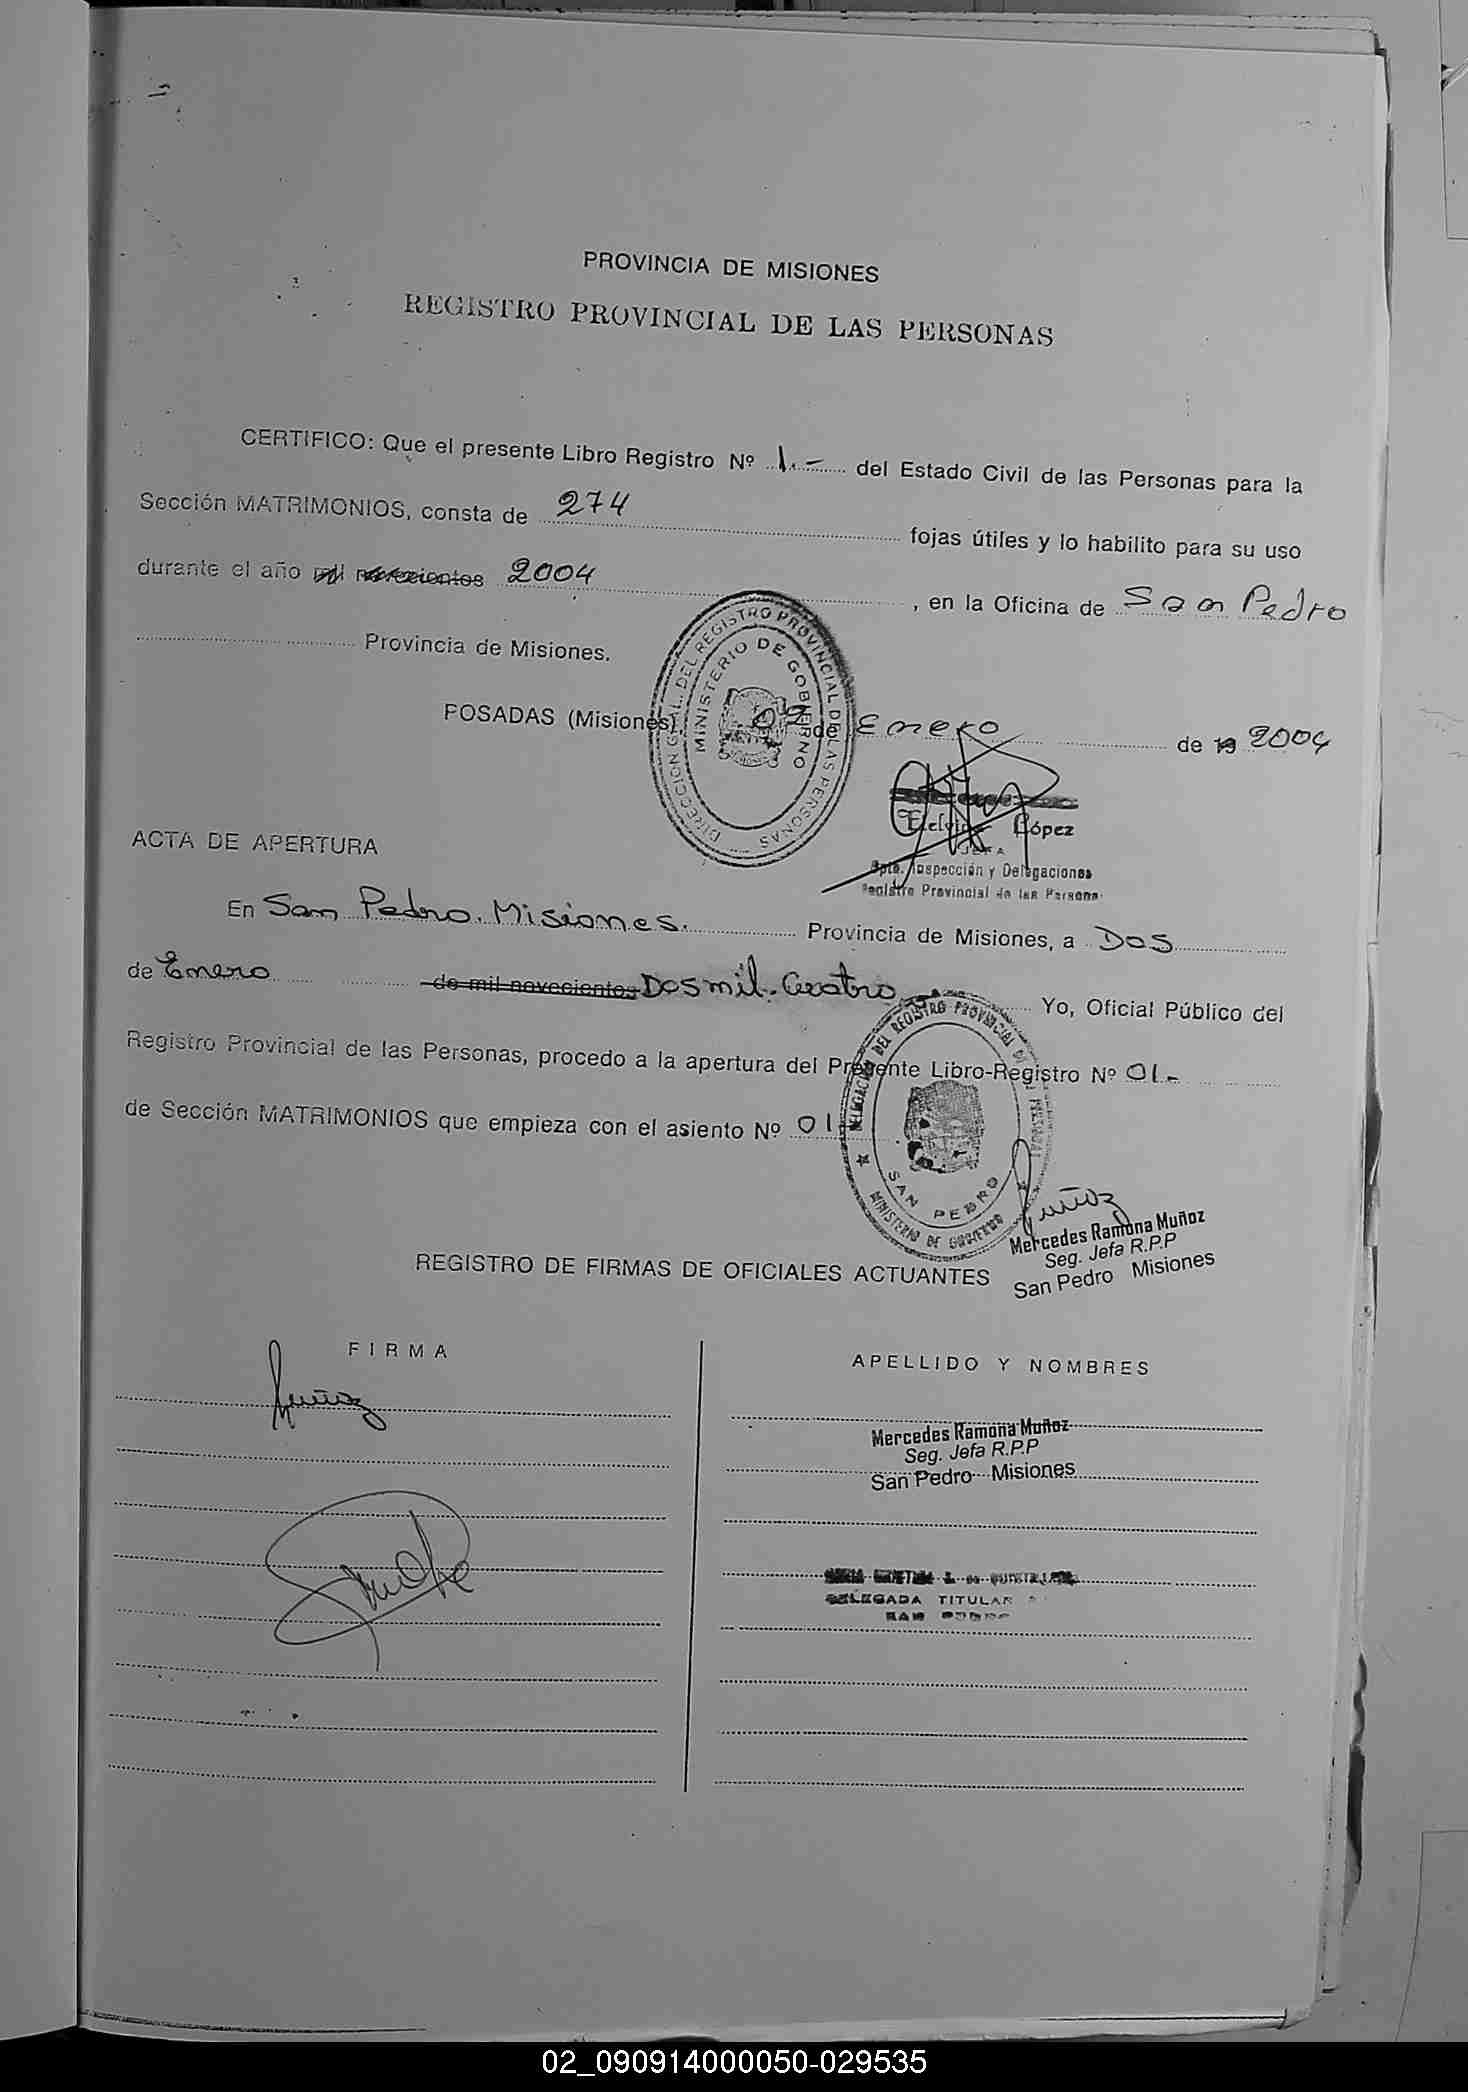 PROVINCIA DE MISIONES
REGISTRO PROVINCIAL DE LAS PERSONAS
CERTIFICO: Que el presente Libro Registro Nº 1.- del Estado Civil de las Personas para la
Sección MATRIMONIOS, consta de 274 fojas útiles y lo habilito para su uso
durante el año mil novecientos 2004, en la Oficina de San Pedro
Provincia de Misiones.
DIRECCION GRAL. DEL REGISTRO PROVINCIAL DE LAS PERSONAS
MINISTERIO DE GOBIERNO
POSADAS (Misiones) 02 de Enero de 19 2004
López
JEFA
Dpto. Inspección y Delegaciones
Registro Provincial de las Personas
ACTA DE APERTURA
En San Pedro. Misiones. Provincia de Misiones, a Dos
de Enero de mil novecientos Dos mil. Cuatro Yo, Oficial Público del
Registro Provincial de las Personas, procedo a la apertura del Presente Libro-Registro Nº 01-
de Sección MATRIMONIOS que empieza con el asiento Nº 01
DELEGACION DEL REGISTRO PROVINCIAL DE PERSONAS
SAN PEDRO
MINISTERIO DE GOBIERNO
Muñoz
Mercedes Ramona Muñoz
Seg. Jefa R.P.P
San Pedro Misiones
REGISTRO DE FIRMAS DE OFICIALES ACTUANTES
FIRMA
APELLIDO Y NOMBRES
Muñoz
Mercedes Ramona Muñoz
Seg. Jefa R.P.P
San Pedro Misiones
DELEGADA TITULAR
SAN PEDRO
02_090914000050-029535